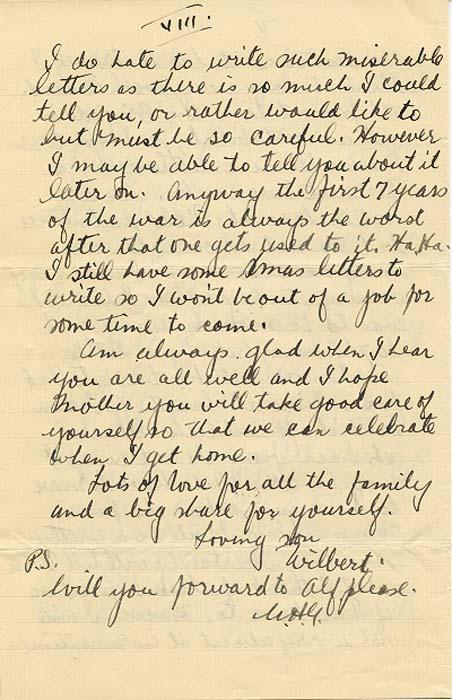 VIII.
I do hate to write such miserable
letters as there is so much I could
tell you, or rather would like to
but must be so careful. However
I may be able to tell you about it
later on. Anyway the first 7 years
of the war is always the worst
after that one gets used to it. Ha, Ha.
I still have some Xmas letters to
write so I won't be out of a job for
some time to come.
Am always glad when I hear
you are all well and I hope
Mother you will take good care of
yourself so that we can celebrate
when I get home.
Lots of love for all the family
and a big share for yourself.
Loving son
Wilbert.
P.S.
Will you forward to Alf please.